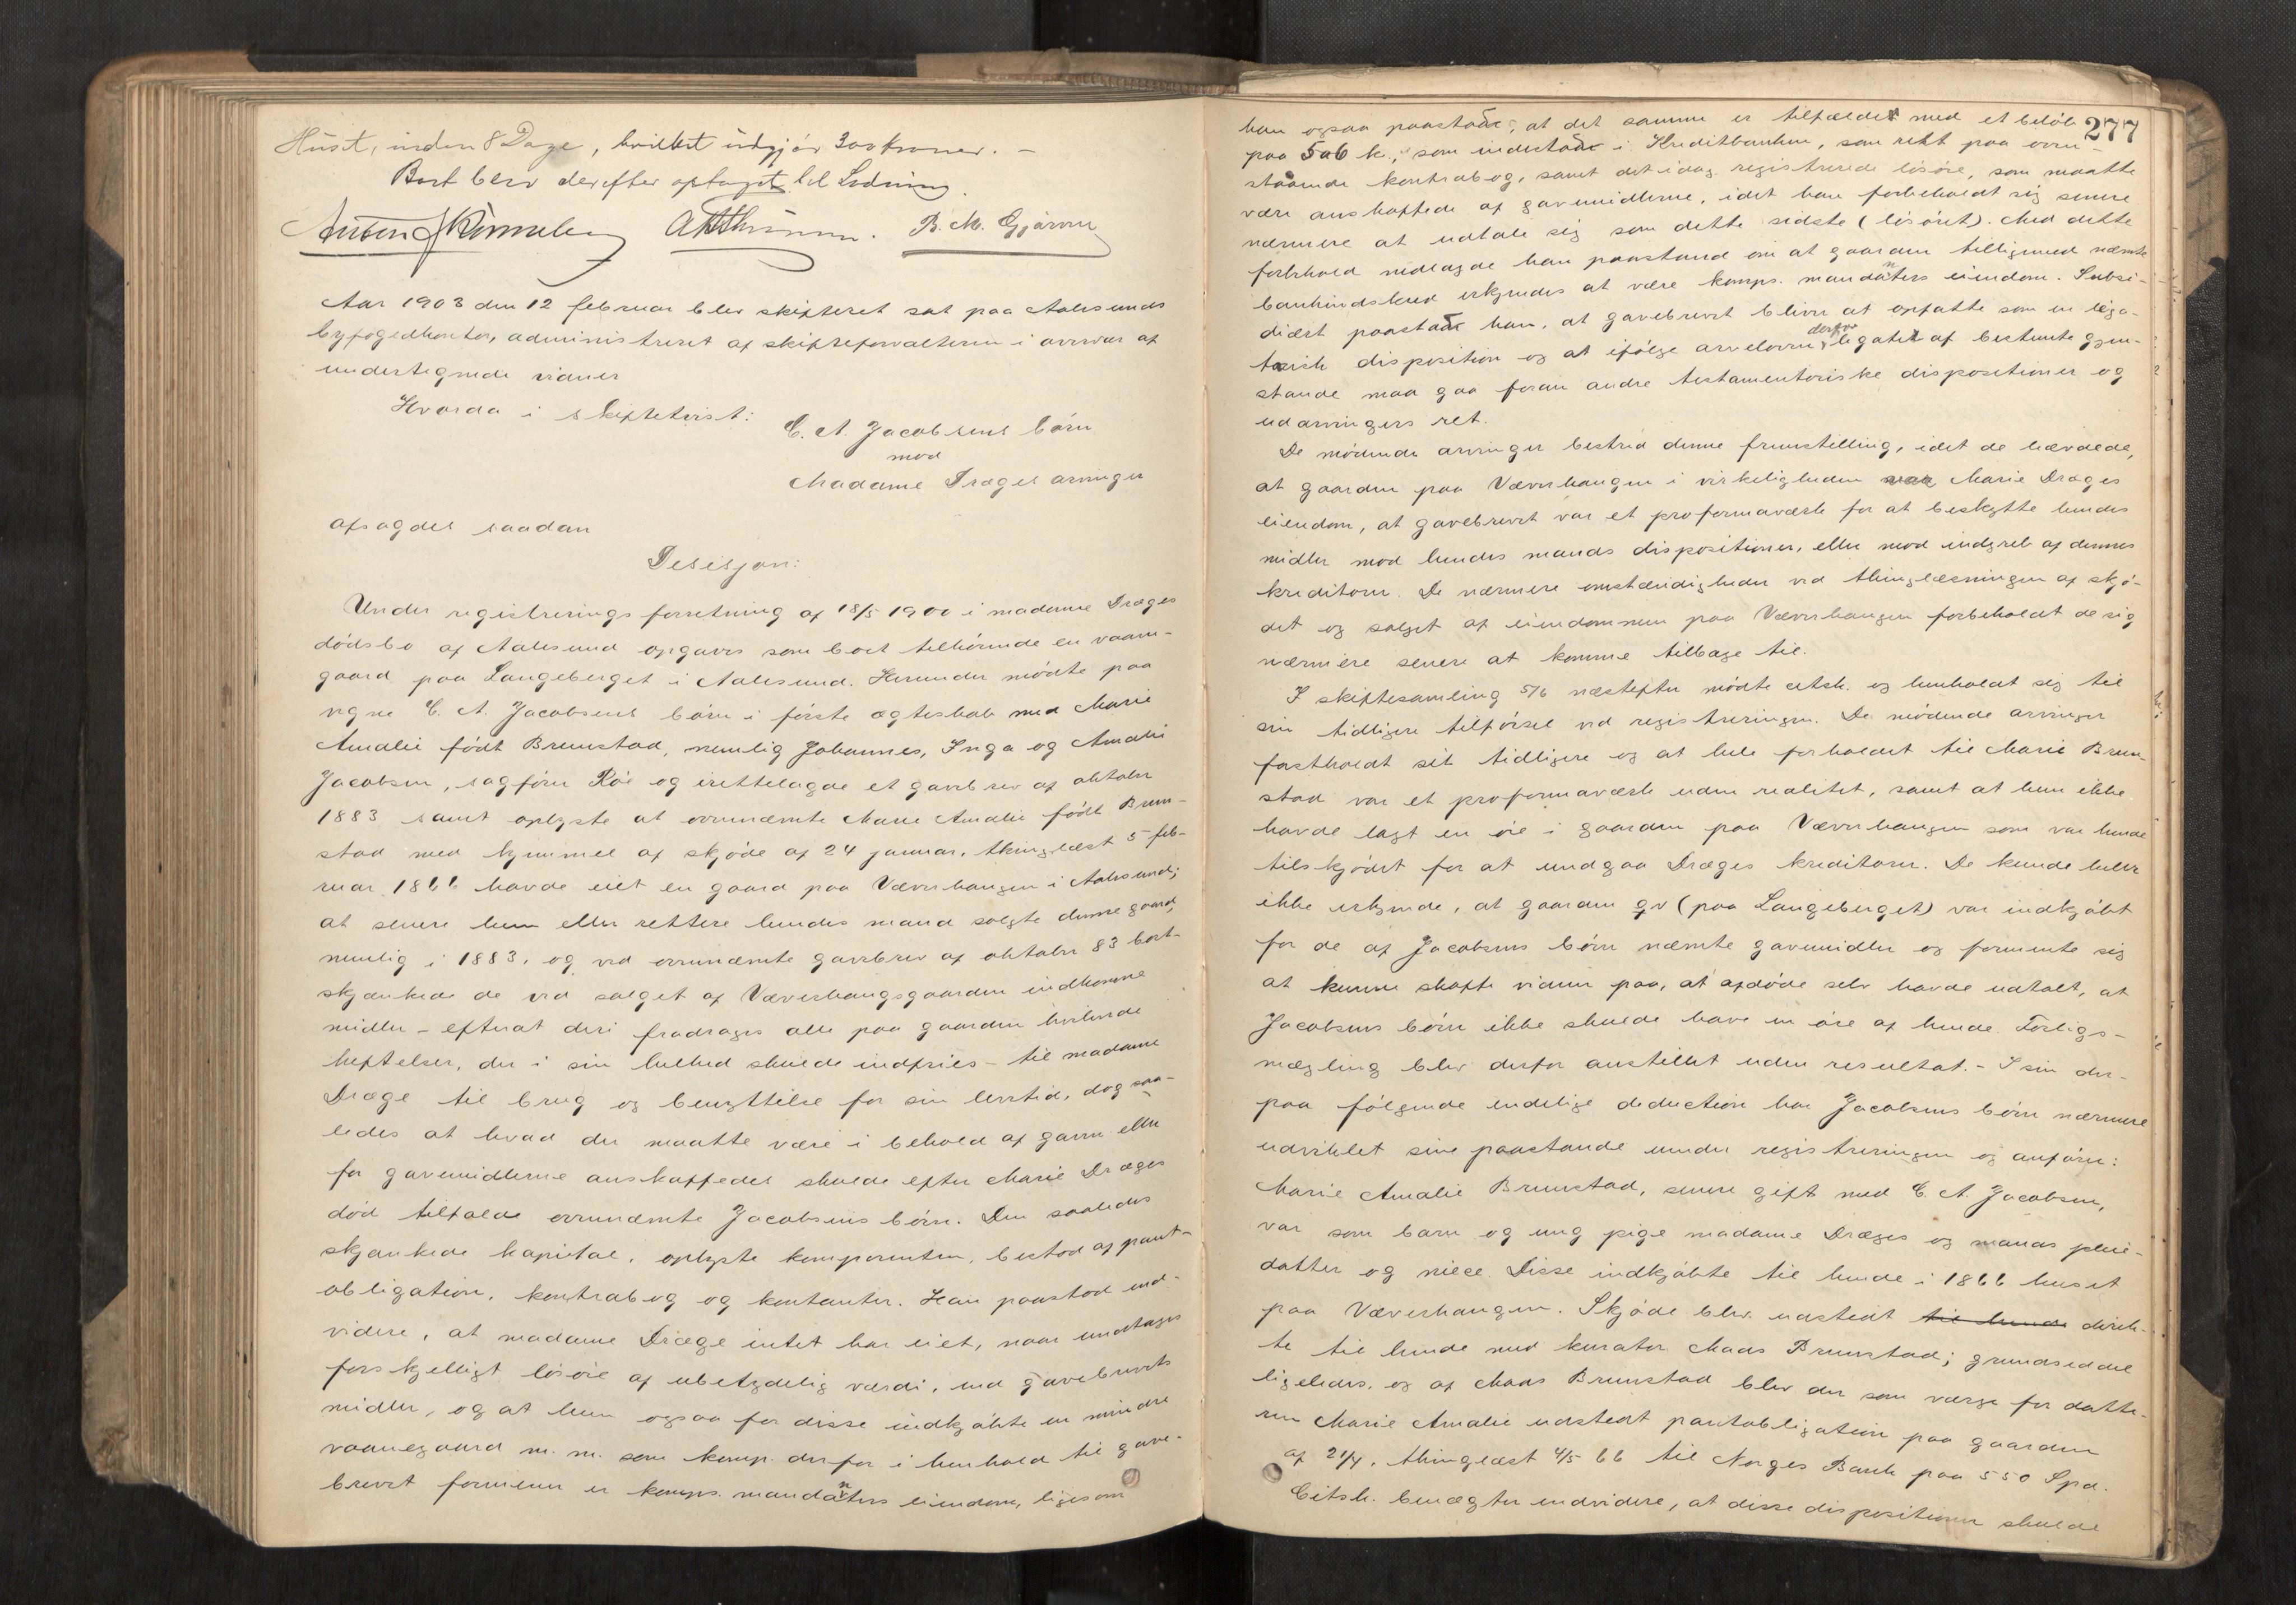 Huset, inden 8 Dage, hvilket udgjør 300 kroner. –
Boet blev derefter optaget til Slutning.
B. M. Gjærum
Aar 1903 den 12 februar blev skifteret sat paa Aalesunds
byfogedkontor, administreret af skifteforvalteren i overvær af
undertegnede vidner
Hvorda i skiftetvist:
C. A. Jacobsens børn
mod
Madame Dræges arvinger
afsagdes saadan
Desisjon:
Under registreringsforretning af 18/5 1900 i madame Dræges
dødsbo af Aalesund opgaves som boet tilhørende en vaan-
gaard paa Langeberget i Aalesund. Herunder mødte paa
vegne C. A. Jacobsens børn i første ægteskab med Marie
Amalie født Brunstad, nemlig Johannes, Inga og Amalie
Jacobsen, sagfører Röe og irettelagde et gavebrev af oktober
1883 samt oplyste at ovennævnte Marie Amalie født Brun-
stad med hjemmel af skjøde af 24 januar, thinglæst 5 feb-
ruar 1866 havde eiet en gaard paa Væverhaugen i Aalesund;
at senere hun eller rettere hendes mand solgte denne gaard,
nemlig i 1883, og ved ovennævnte gavebrev af oktober 83 bort-
skjænkede de ved salget af Væverhaugsgaarden indkomne
midler – efterat deri fradrages alle paa gaarden hvilende
heftelser, der i sin helhed skulde indfries – til madame
Dræge til brug og benyttelse for sin levetid, dog saa-
ledes at hvad der maatte være i behold af gaven eller
for gavemidlerne anskaffedes skulde efter Marie Dræges
død tilfalde ovennævnte Jacobsens børn. Den saaledes
skjænkede kapital, oplyste komparenten, bestod af pant-
obligation, kontrabog og kontanter. Han paastod end-
videre, at madame Dræge intet har eiet, naar undtages
forskjelligt løsøre af ubetydelig værdi, end gavebrevets
midler, og at hun ogsaa for disse indkjøbte en mindre
vaanegaard m. m. som komp. derfor i henhold til gave-
brevet formener er komps. mandanters eiendom, ligesom
277
han ogsaa paastode, at det samme er tilfældet med et beløb
paa 506 k., som indestode i Kreditbanken, som rett paa oven-
staaende kontrabog, samt det idag registrerede løsøre, som maatte
være anskaffede af gavemidlerne, idet han forbeholdt sig senere
nærmere at udtale sig om dette sidste (løsøret). Med dette
forbehold nedlagde han paastand om at gaarden tilligemed nævnte
bankindskud erkjendes at være komps. mandanters eiendom. Subsi-
diært paastode han, at gavebrevet bliver at opfatte som en lega-
tarisk disposition og at ifølge arveloven derfor legatet af bestemte gjen-
stande maa gaa foran andre testamentoriske dispositioner og
udarvingers ret.
De mødende arvinger bestred denne fremstilling, idet de hævdede,
at gaarden paa Væverhaugen i virkeligheden var Marie Dræges
eiendom, at gavebrevet var et proformaværk for at beskytte hendes
midler mod hendes mands dispositioner, eller mod indgreb af dennes
kreditorer. De nærmere omstændigheder ved thinglæsningen af skjø-
det og salget af eiendommen paa Væverhaugen forbeholdt de sig
nærmere senere at komme tilbage til.
I skiftesamling 5/6 næstefter mødte citsk. og henholdt sig til
sin tidligere tilførsel ved registreringen. De mødende arvinger
fastholdt sit tidligere og at hele forholdet til Marie Brun-
stad var et proformaværk uden realitet, samt at hun ikke
havde lagt en øre i gaarden paa Væverhaugen som var hende
tilskjødet for at undgaa Dræges kreditorer. De kunde heller
ikke erkjende, at gaarden qv (paa Langeberget) var indkjøbt
for de af Jacobsens børn nævnte gavemidler og formente sig
at kunne skaffe vidner paa, at afdøde selv havde udtalt, at
Jacobsens børn ikke skulde have en øre af hende. Forligs-
mægling blev derfor anstillet uden resultat. – I sin der-
paa følgende endelige deduction har Jacobsens børn nærmere
udviklet sine paastande under registreringen og anfører:
Marie Amalie Brunstad, senere gift med C. A. Jacobsen,
var som barn og ung pige madame Dræges og mands pleie-
datter og niece. Disse indkjøbte til hende i 1866 huset
paa Væverhaugen. Skjøde blev udstedt til hende direk-
te til hende med kurator Mads Brunstad; grundseddel
ligeledes, og af Mads Brunstad blev der som værge for datte-
ren Marie Amalie udstedt pantobligation paa gaarden
af 21/4, thinglæst 4/5 66 til Norges Bank paa 550 Spd.
Citsk. benægter endvidere, at disse dispositioner skulde